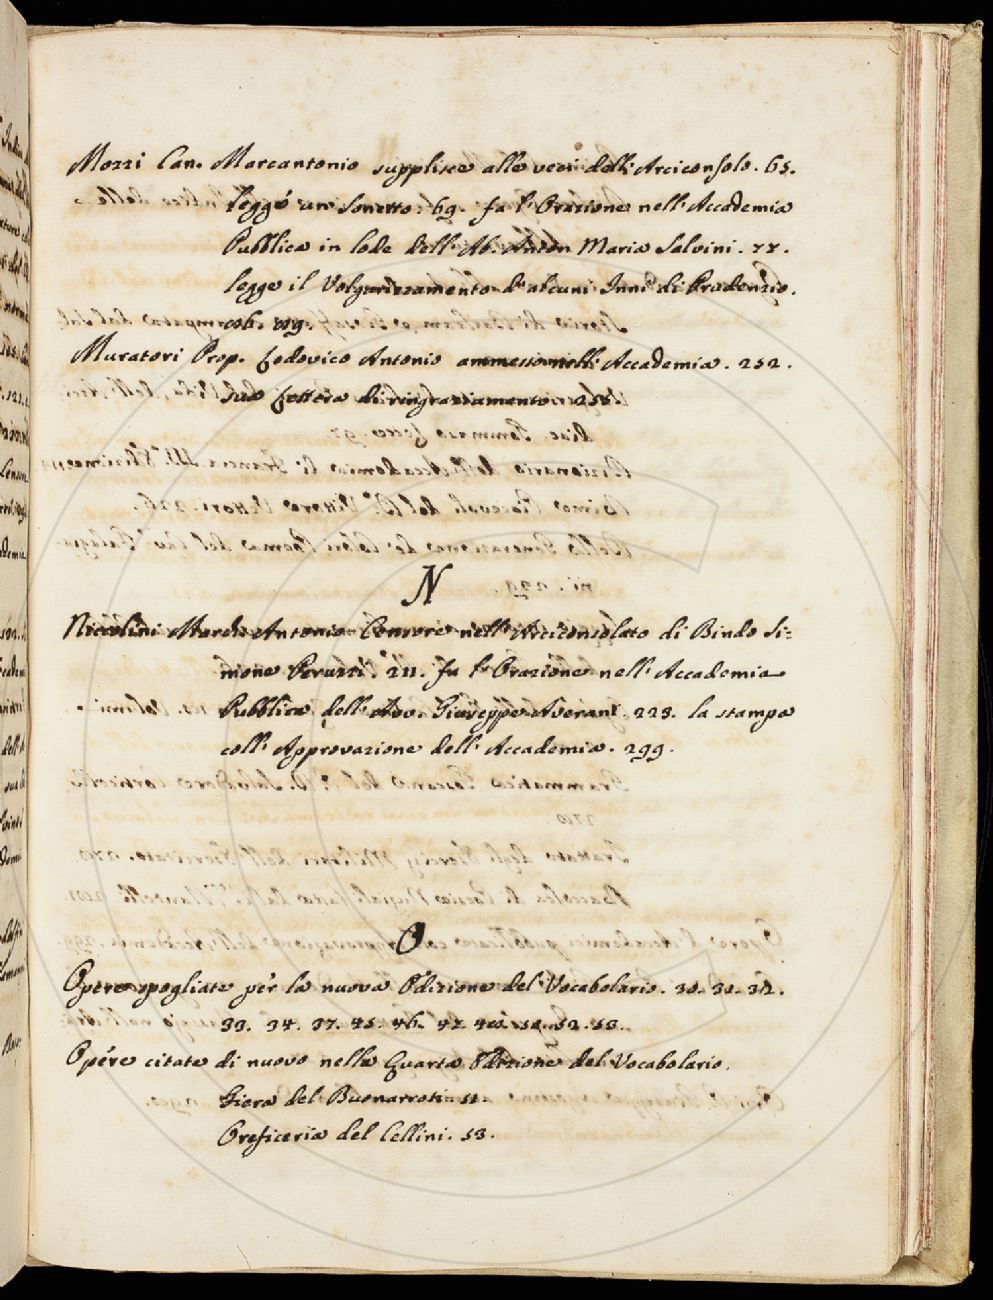 Mozzi Can. Marcantonio supplisce alle veci dell' Arciconsolo. 65.
legge un Sonetto. 69. fa l' Orazione nell' Accademia
Pubblica in lode dell' Ab. Anton Maria Salvini. 77.
legge il Volgarizzamento d' alcuni Inni di Prudenzio.
Muratori Prop. Lodovico Antonio ammesso nell' Accademia. 252.
sua Lettera di ringraziamento.
N
Niccolini March. Antonio Censore nell' Arciconsolato di Bindo Si=
mone Peruzzi. 211. fa l' Orazione nell' Accademia
Pubblica dell' Avv. Giuseppe Averani. 223. la stampa
coll' Approvazione dell' Accademia. 299.
O
Opere spogliate per la nuova Edizione del Vocabolario. 30. 31. 32.
33. 34. 37. 45. 46. 47. 52. 53.
Opere citate di nuovo nella Quarta Edizione del Vocabolario.
Fiera del Buonarroti. 51.
Oreficeria del Cellini. 53.